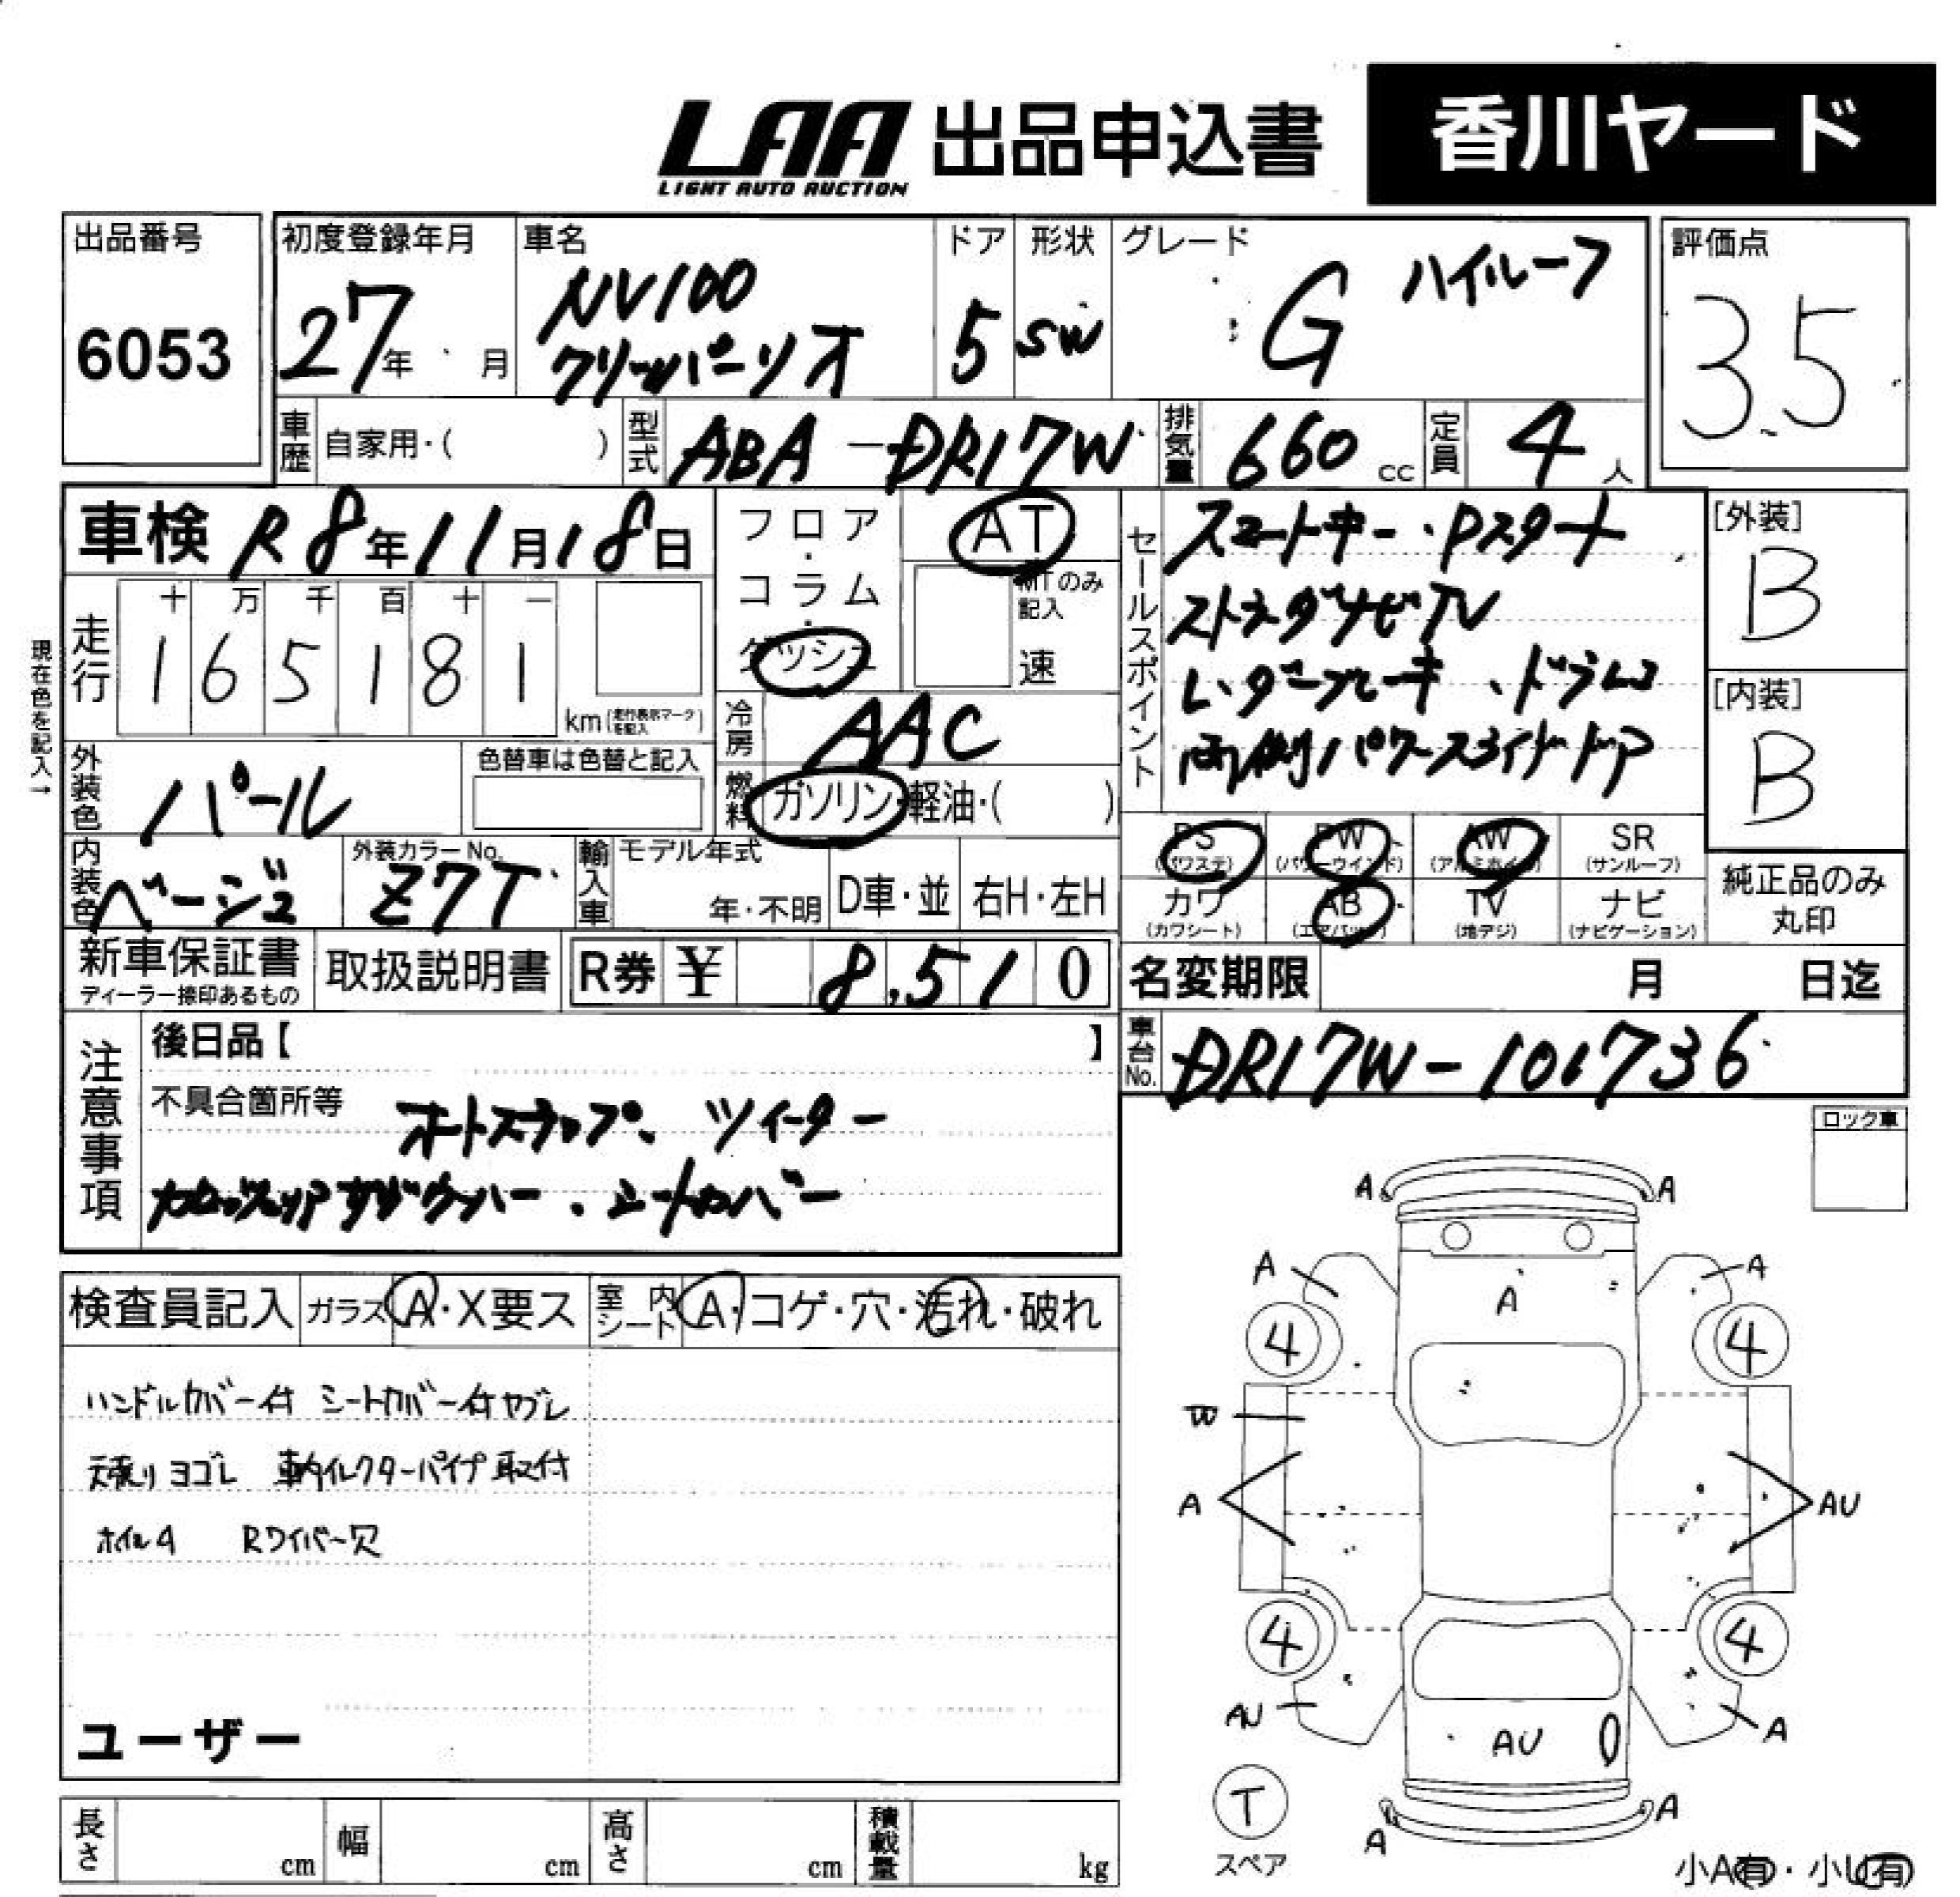 LAA 出品申込書 香川ヤード
LIGHT AUTO AUCTION
出品番号 6053
初度登録年月 27年 月
車名 NV100 クリッパーリオ
ドア 5
形状 SW
グレード G ハイルーフ
評価点 3.5
車歴 自家用・( )
型式 ABA-DR17W
排気量 660 cc
定員 4 人
車検 R8年11月18日
フロア・コラム・ダッシュ
AT
MTのみ記入
速
セールスポイント
スマートキー・Pスタート
ストラダナビTV
レーダーブレーキ、ドラレコ
両側パワースライドドア
[外装] B
[内装] B
現在色を記入→
走行 十 万 千 百 十 一
165181
km(走行表示マークを記入)
冷房 AAC
外装色 パール
色替車は色替と記入
燃料 ガソリン・軽油・( )
内装色 ベージュ
外装カラーNo. Z7T
輸入車 モデル年式 年・不明 D車・並 右H・左H
PS (パワステ) PW (パワーウインド) AW (アルミホイル) SR (サンルーフ)
カワ (カワシート) AB (エアバッグ) TV (地デジ) ナビ (ナビゲーション)
純正品のみ丸印
新車保証書 ディーラー捺印あるもの
取扱説明書
R券 ¥ 8,510
名変期限 月 日迄
車台No. DR17W-101736
注意事項
後日品【 】
不具合箇所等
オートステップ、ツイーター
カロッツェリア サブウーハー、シートカバー
ロック車
検査員記入 ガラス A・X要ス 室内シート A・コゲ・穴・汚れ・破れ
ハンドルカバー付 シートカバー付ヤブレ
天張りヨゴレ 車内イレクターパイプ取付
ホイルA Rワイパー穴
ユーザー
A A
A A
A
4 4
W
A AU
4 4
AU A
AU
T
スペア
A A
小A有・小U有
長さ cm 幅 cm 高さ cm 積載量 kg